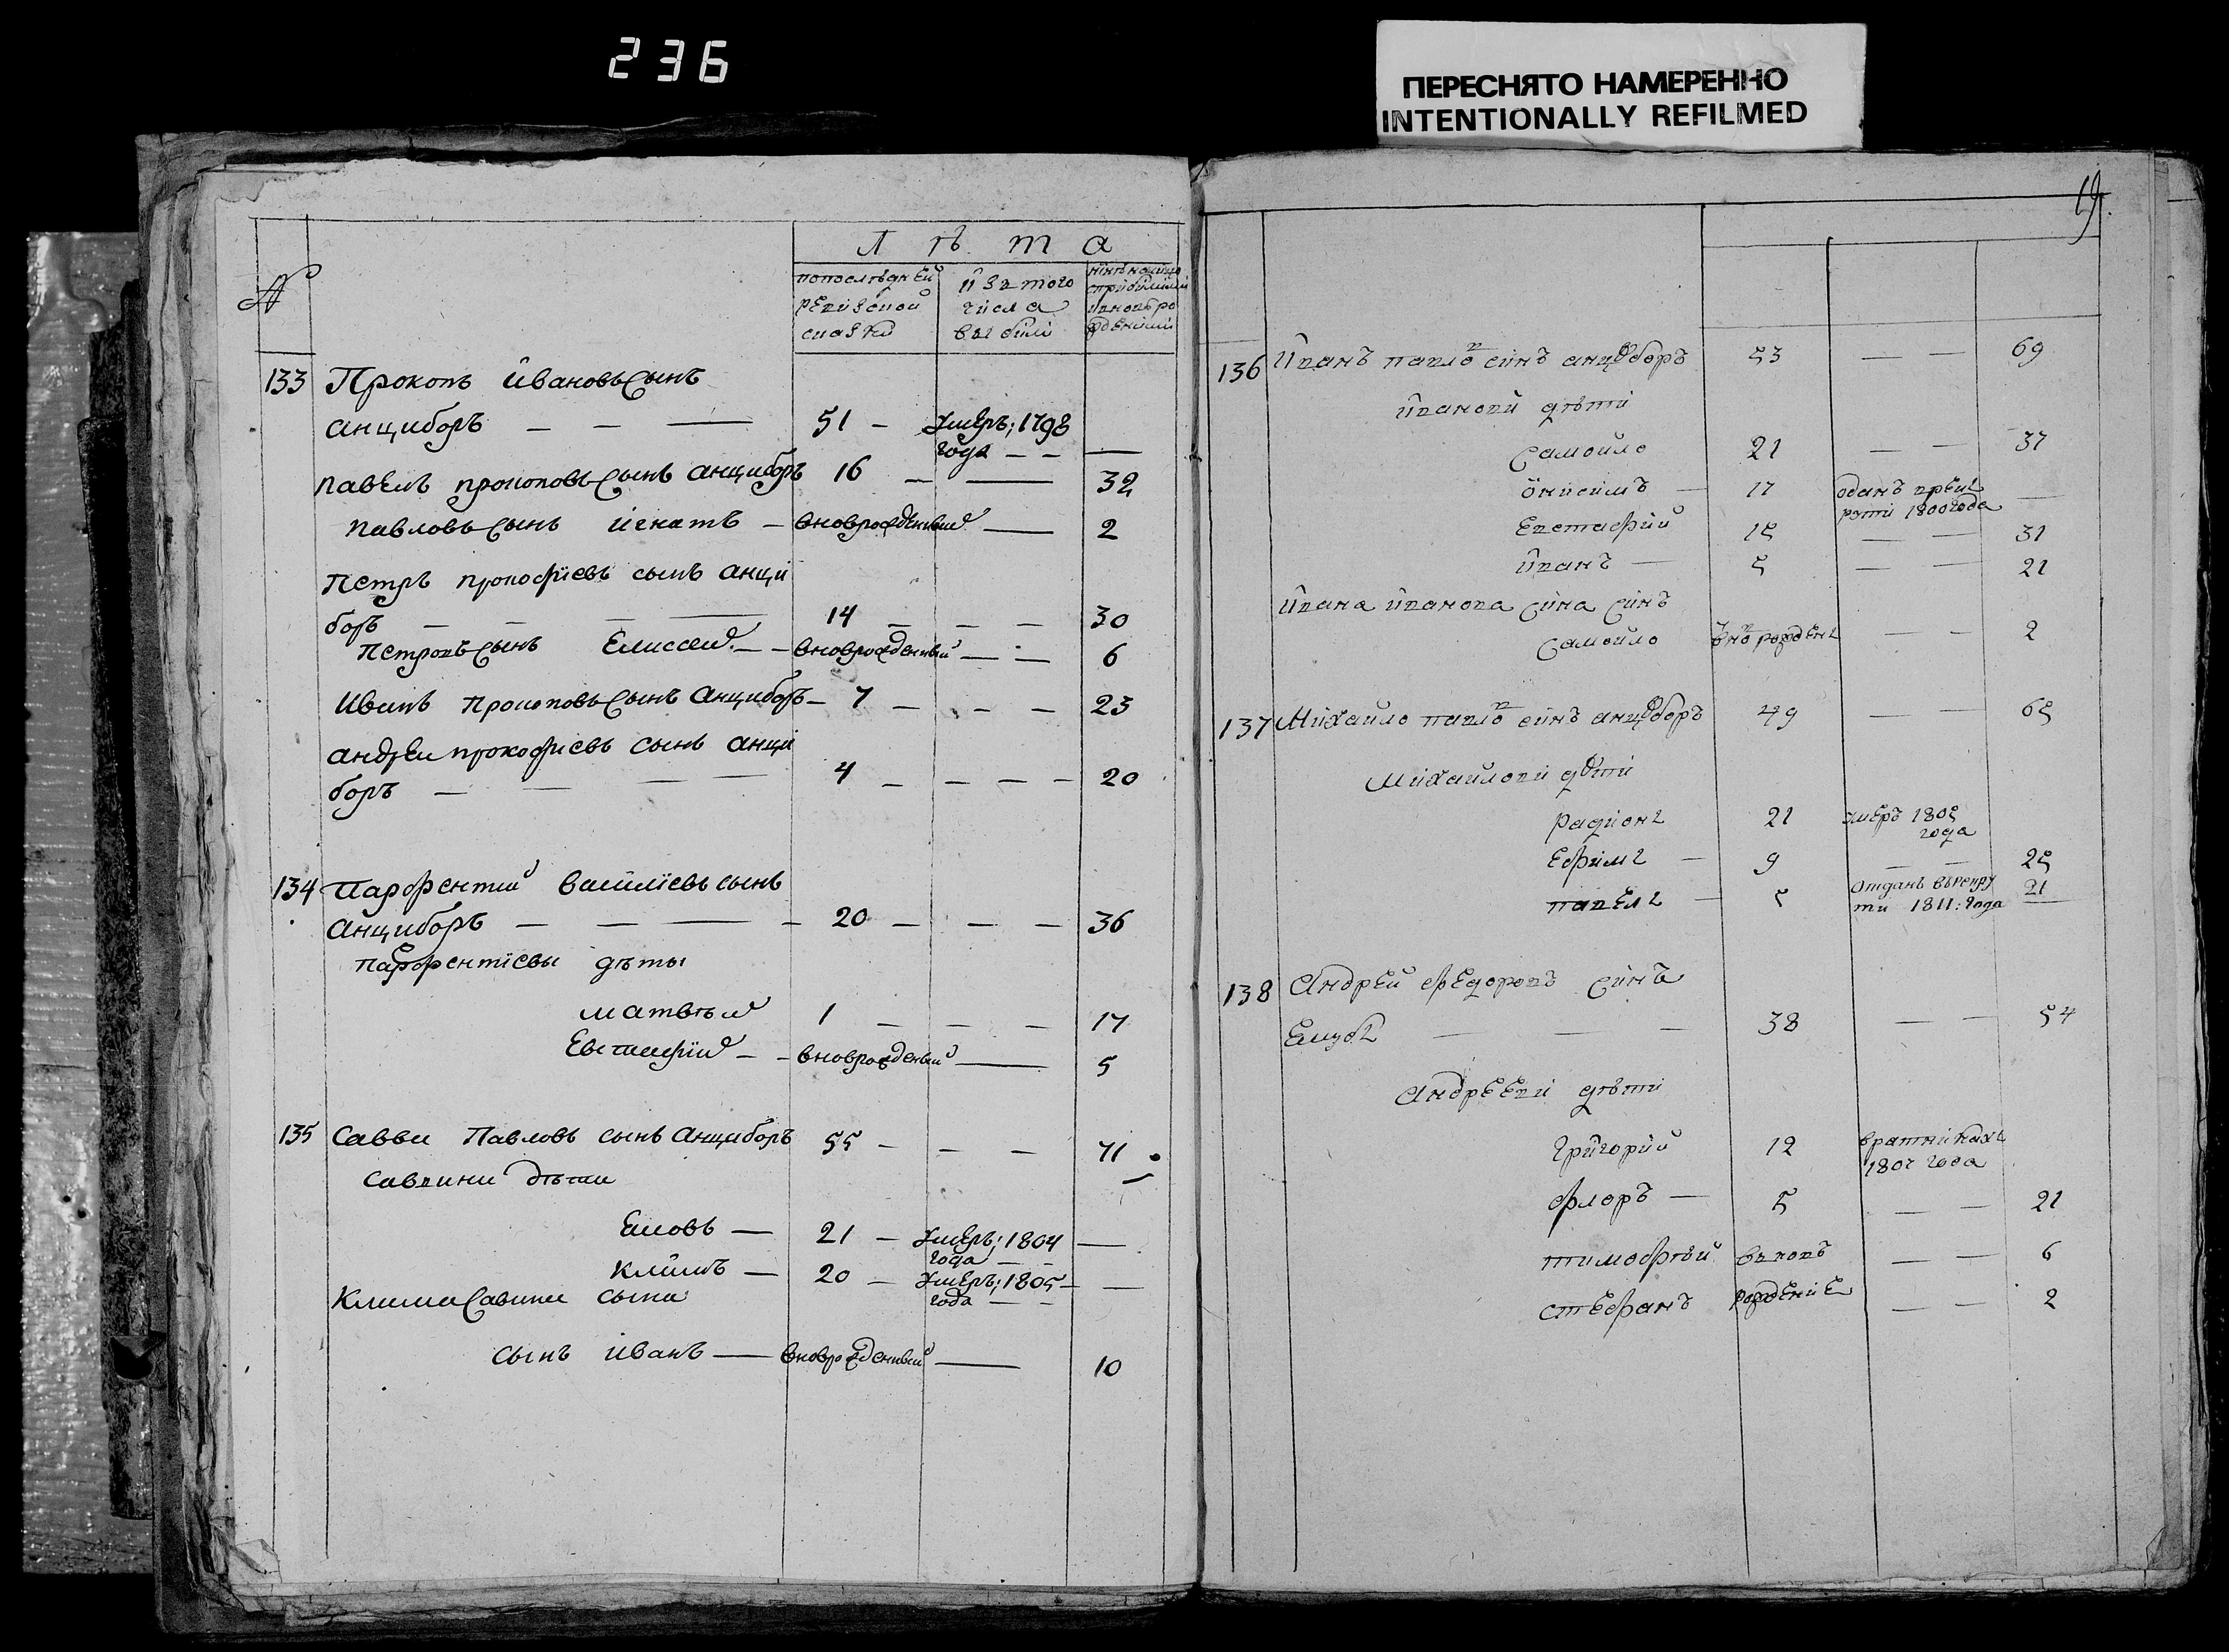 236
ПЕРЕСНЯТО НАМЕРЕННО
INTENTIONALLY REFILMED
19.
№
Лѣта
попослѣдней ревизской сказки
изъ того числа выбыли
133 Прокопъ ивановъ сынъ
анциборъ — — — 51 — Умеръ; 1798
года — — —
павелъ прокоповъ сынъ анциборъ 16 — — 32
павловъ сынъ игнатъ — вноврожденный — 2
Петръ прокофіевъ сынъ анци
боръ — — — 14 — — — 30
Петровъ сынъ Елисей — — вноврожденный — — 6
Иванъ прокоповъ сынъ анциборъ — 7 — — — 23
андрей прокофіевъ сынъ анци
боръ — — — — 4 — — — — 20
134 Парфентий василіевъ сынъ
анциборъ — — — — 20 — — — 36
парфентіевы дѣты
матвѣй 1 — — — 17
Евстафій — — вноврожденый — 5
135 Савва Павловъ сынъ анциборъ 55 — — — 71
Савины дѣти
Еновъ — 21 — Умеръ; 1804 —
года — —
Климъ — 20 — Умеръ; 1805 — —
года — —
Клима Савина сына
сынъ иванъ — вноврожденный — 10
136 Иванъ павло в синъ анцѣборъ 53 — — 69
Ивановы дѣти
Самойло 21 — — 37
Онисимъ — 17 оданъ врек
рути 1800 года —
Евстафий 15 — — 31
Иванъ — 5 — — 21
Ивана иванова сина синъ
Самойло вно рожденъ — — 2
137 Михайло павло в синъ анцѣборъ 49 — — 65
Михайлови дѣти
радионъ 21 умеръ 1805
года
Ефимъ — 9 — — 25
павелъ — 5 Отданъ въ рекру
ти 1811: года 21
138 Андрей Федоровъ синъ
— — — 38 — — 54
Андрееви дѣти
Григорий 12 вратникахъ
1807 года
Флоръ — 5 — — 21
тимофѣй вновъ — — 6
стефанъ рождение — — 2